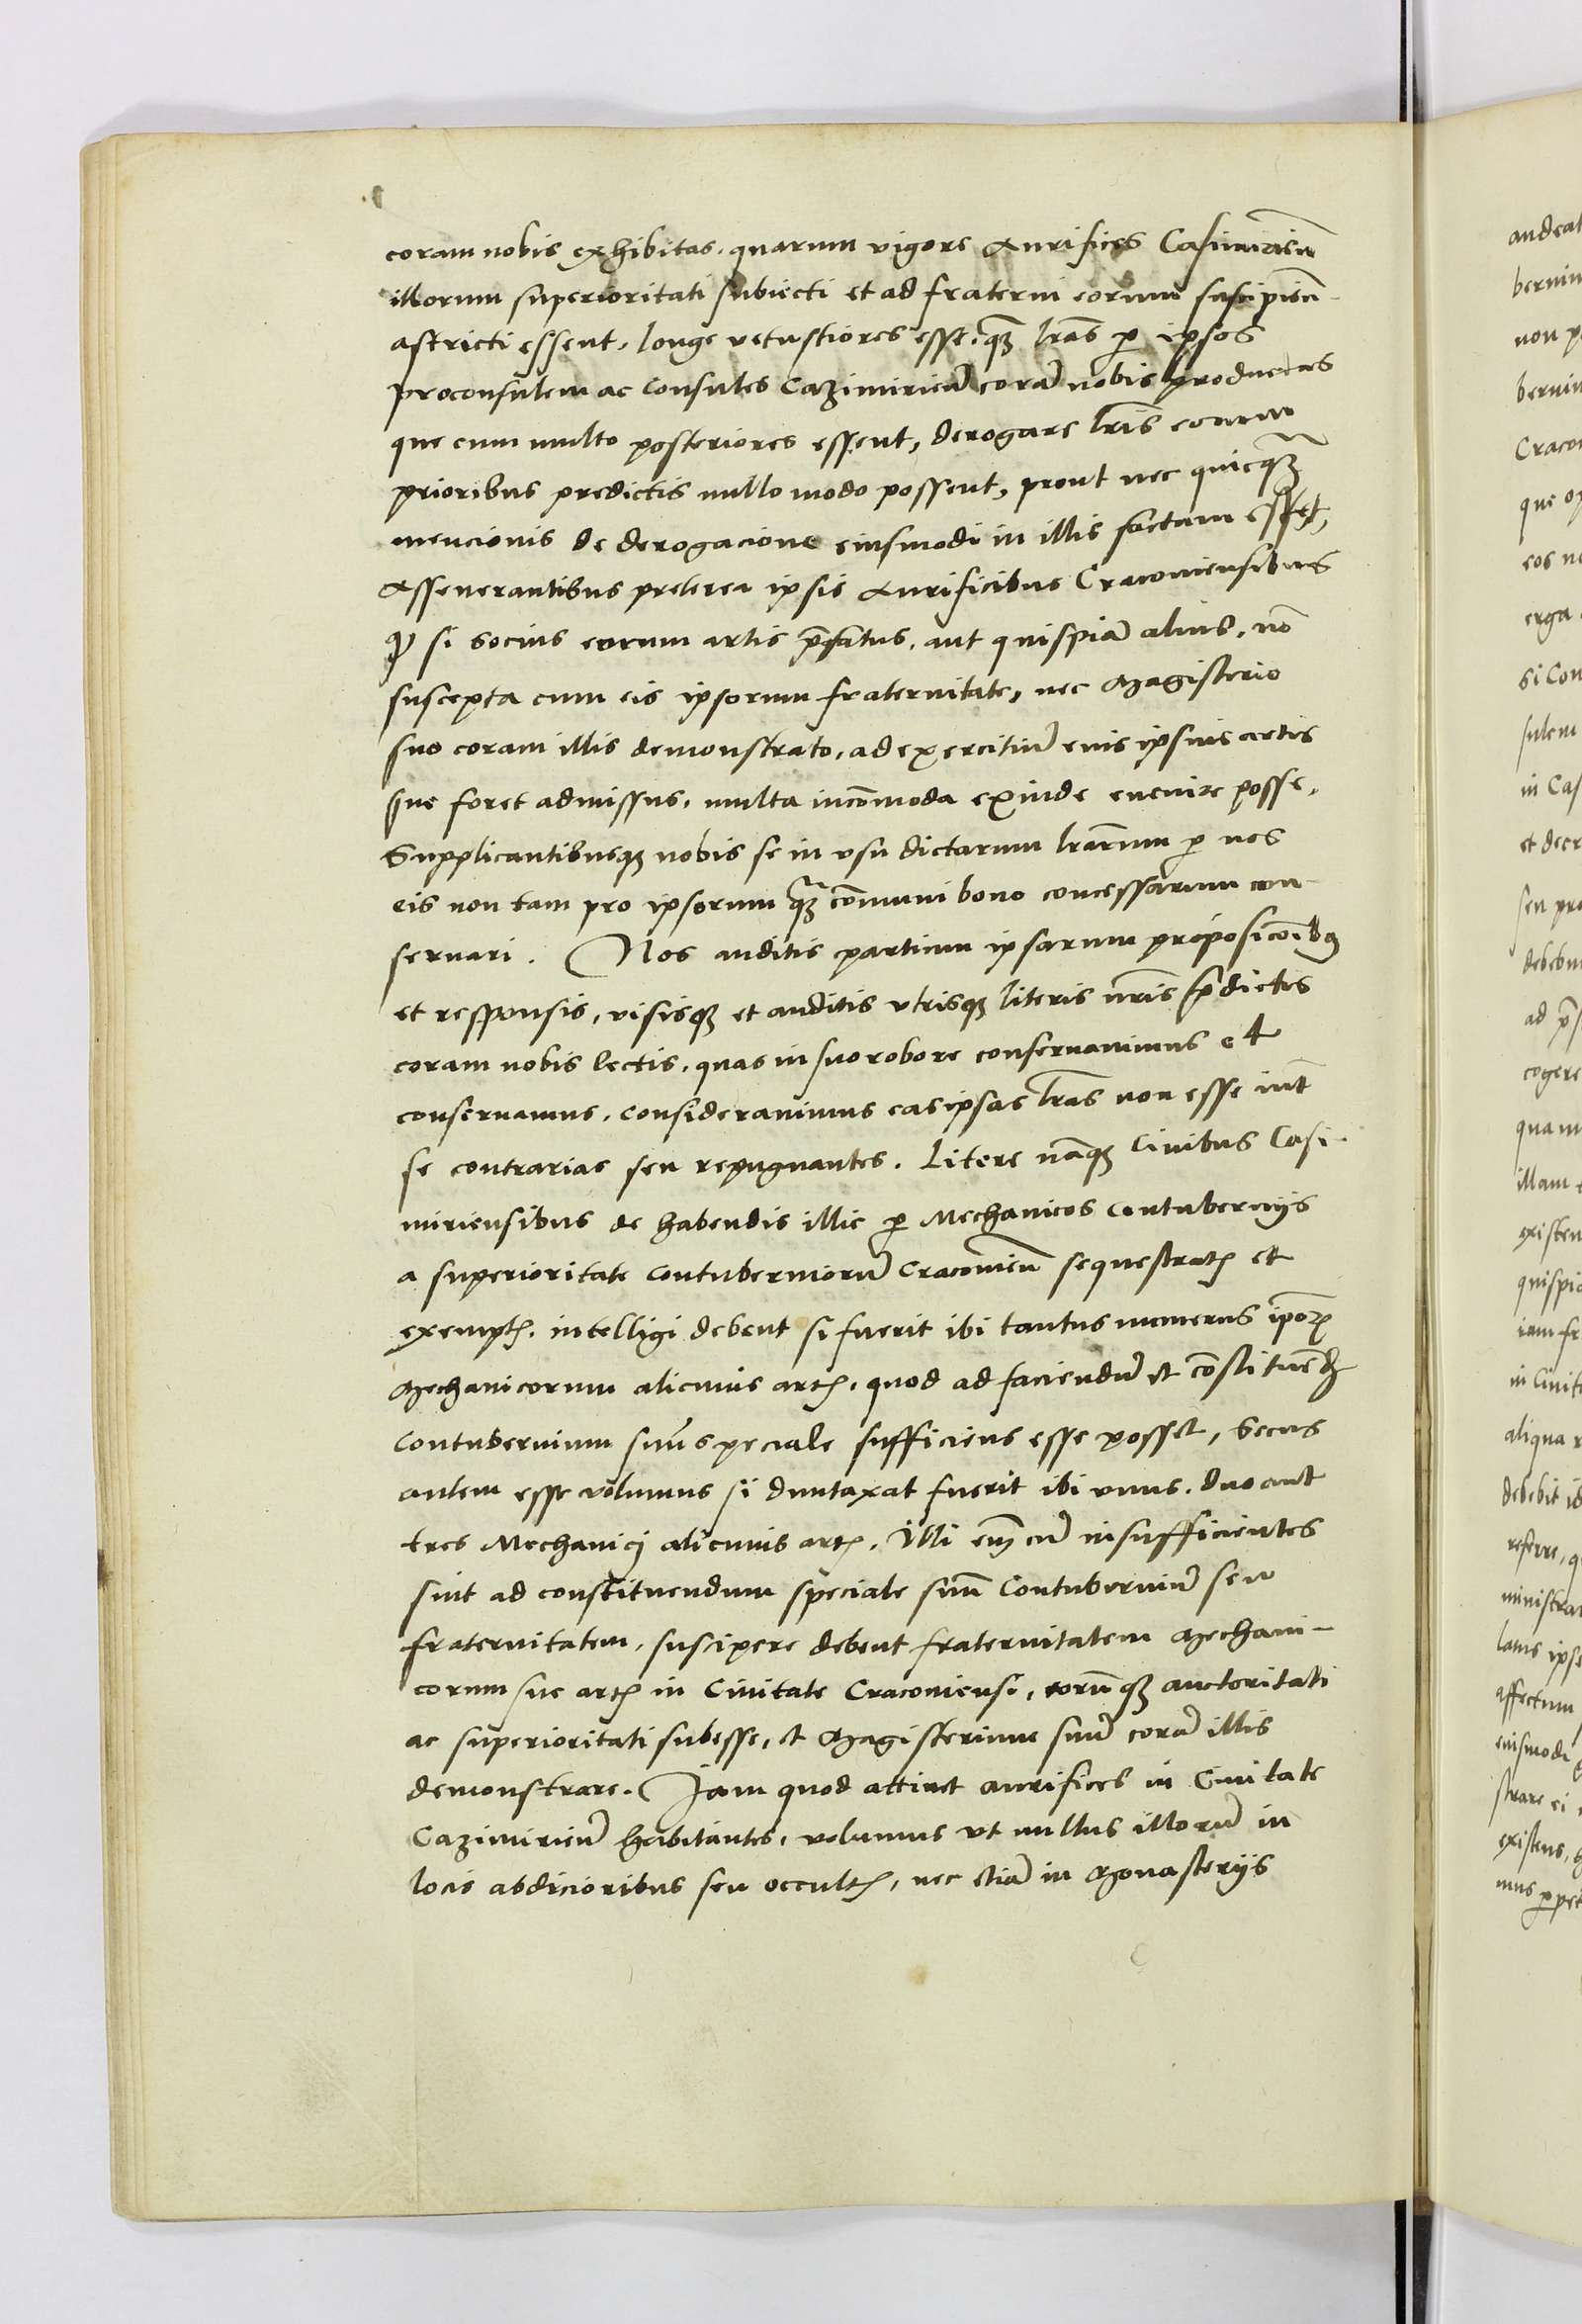 coram nobis exhibitas. quarum vigore Aurifices Casimirien̄
illorum superioritati subiecti et ad fraterni eorum suscipien̄-
astricti essent, longe vetustiores esse, q̄ꝫ lr̄as ꝑ ipsos
proconsulem ac Consules Cazimirien̄ corā nobis productas
que cum multo posteriores essent, derogare lr̄is eorum
prioribus predictis nullo modo possent, prout nec quicq̄ꝫ
mencionis de derogacione eiusmodi in illis factum esset,
Asseuerantibus preterea ipsis Aurificibus Cracouiensibus
ꝙ si socius eorum artis p̄fatus. aut quispiā alius, nō
suscepta cum eis ipsorum fraternitate, nec Magisterio
suo coram illis demonstrato, ad exercitiū euis ipsius artis
sue foret admissus, multa incōmoda exinde euenire posse,
Supplicantibusqꝫ nobis se in vsu dictarum lr̄arum ꝑ nos
eis non tam pro ipsorum q̄ꝫ cōmuni bono concessarum con-
seruari. Nos auditis partium ipsarum proposicōibꝫ
et responsis, visisqꝫ et auditis vtrisqꝫ literis nr̄is p̄dictis
coram nobis lectis, quas in suo robore conseruauimus et
conseruamus, considerauimus eas ipsas lr̄as non esse int̄
se contrarias seu repugnantes. Litere nāqꝫ Ciuibus Casi-
miriensibus de habendis illic ꝑ Mechanicos Contubernijs
a superioritate Contuberniorū Cracouien̄ sequestratꝭ et
exemptꝭ. intelligi debent si fuerit ibi tantus numerus ip̄oꝝ
Mechanicorum alicuius artꝭ, quod ad faciendū et cōstituēdꝫ
Contubernium suū speciale sufficiens esse posset, secus
autem esse volumus si duntaxat fuerit ibi vnus. duo aut
tres Mechanici alicuius artꝭ. Illi em̄ cū insufficientes
sint ad constituendum speciale suū Contuberniū seu
fraternitatem, suscipere debent fraternitatem Mechani-
corum sue artꝭ in Ciuitate Cracouiensi, eorūqꝫ auctoritati
ac superioritati subesse, et Magisterium suū corā illis
demonstrare. Jam quod attinet aurifices in Ciuitate
Cazimirien̄ habitantes, volumus vt nullus illorū in
locis abdicioribus seu occultꝭ, nec etiā in Monasterijs